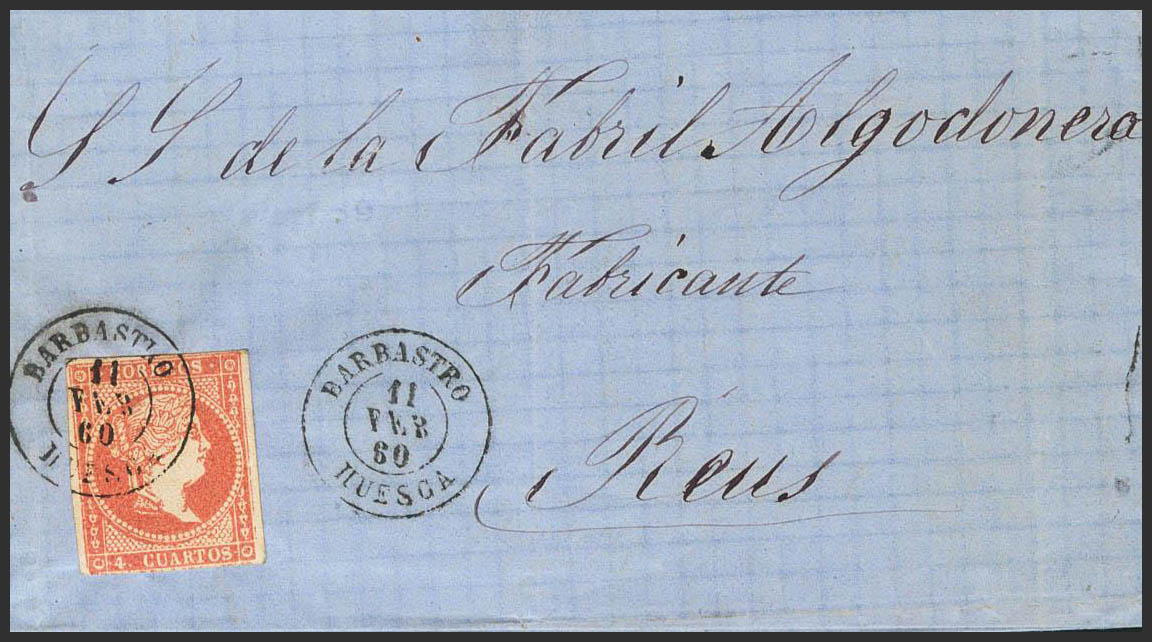 S S de la Fabril Algodonera
Fabricante
Reus
BARBASTRO
11
FEB
60
HUESCA
BARBASTRO
11
FEB
60
HUESCA
CORREOS
4 CUARTOS